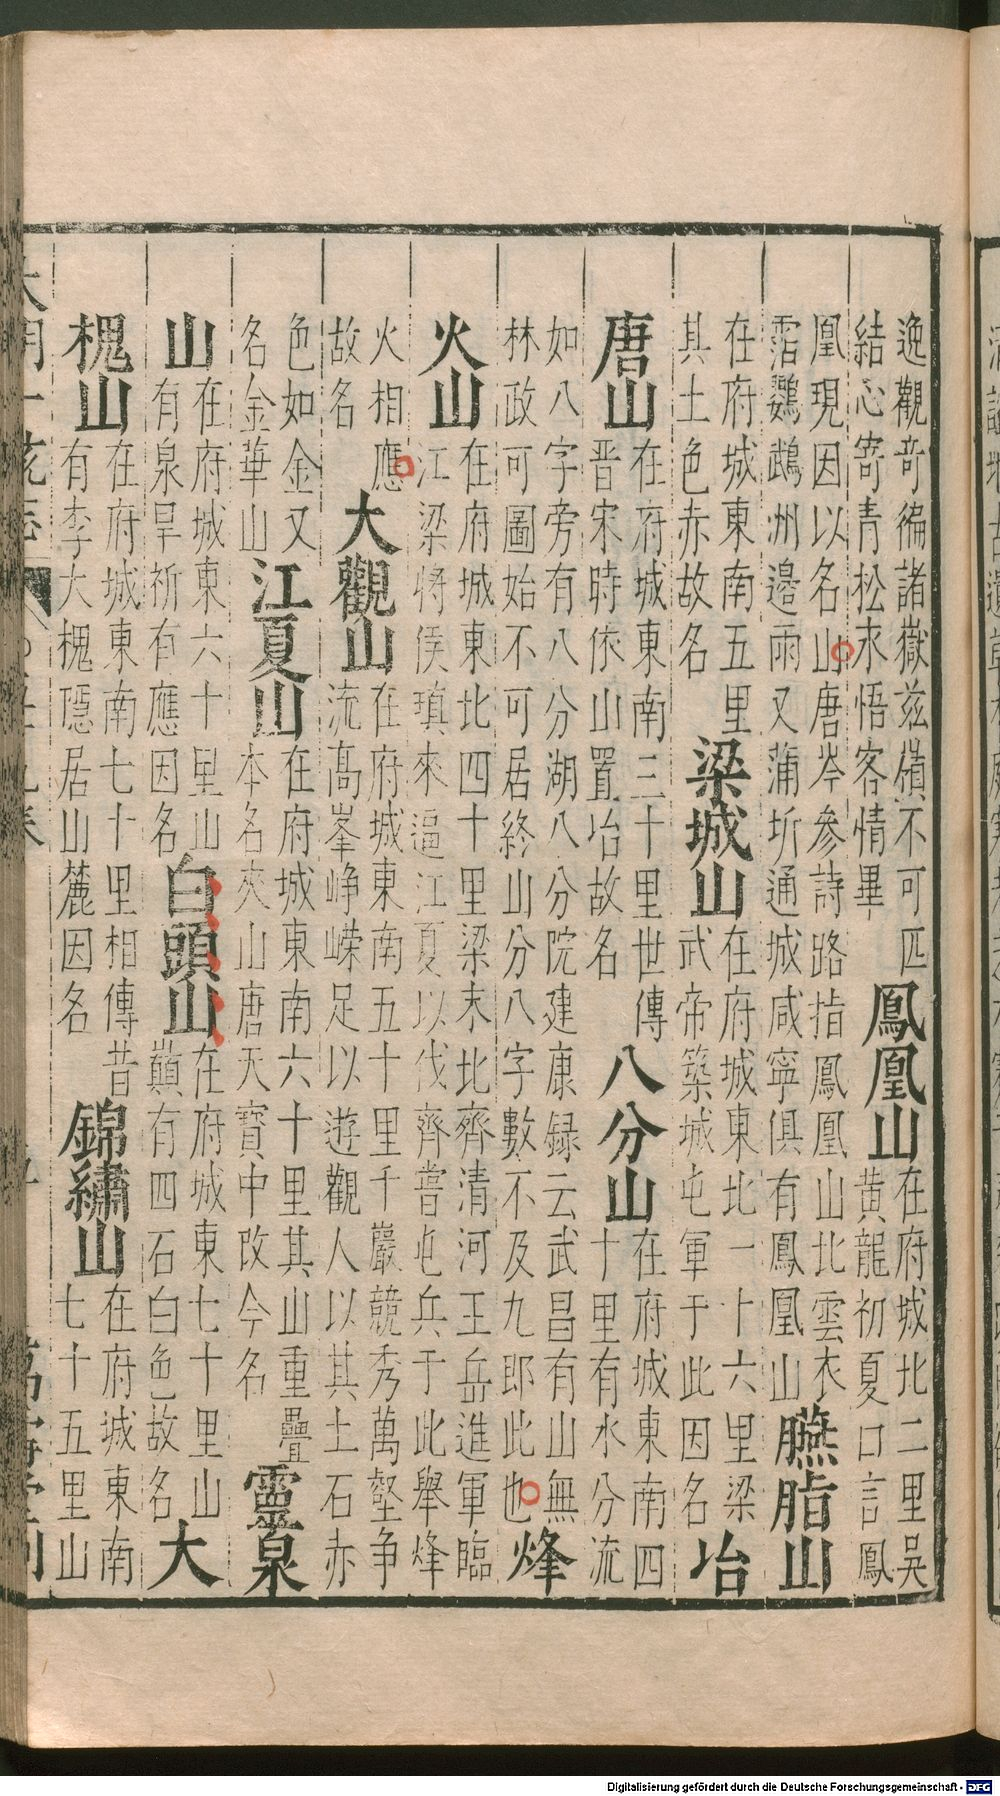 逸觀奇徧諸嶽茲嶺不可匹結心寄青松永悟客情畢鳳凰山在府城北二里吳黃龍初夏口言鳳
凰現因以名山唐岑參詩路指鳳凰山北雲衣霑鸚鵡州邊雨又蒲圻通城咸寧俱有鳳凰山臙脂山
在府城東南五里其土色赤故名梁城山在府城東北一十六里梁武帝築城屯軍于此因名冶
唐山在府城東南三十里世傳晉宋時依山置冶故名八分山在府城東南四十里有水分流
如八字旁有八分湖八分院建康録云武昌有山無林政可圖始不可居終山分八字數不及九郎此也烽
火山在府城東北四十里梁末北齊清河王岳進軍臨江梁將侯瑱來逼江夏以伐齊嘗屯兵于此舉烽
火相應故名大觀山在府城東南五十里千巖競秀萬壑争流高峯崢嶸足以遊觀人以其土石赤
色如金又名金華山江夏山在府城東南六十里其山重疊本名夾山唐天寶中改今名靈泉
山在府城東六十里山有泉旱祈有應因名白頭山在府城東七十里山巔有四石白色故名大
槐山在府城東南七十里相傳昔有李大槐隱居山麓因名錦繡山在府城東南七十五里山
大明一統志 九 萬壽堂刊
Digitalisierung gefördert durch die Deutsche Forschungsgemeinschaft - DFG